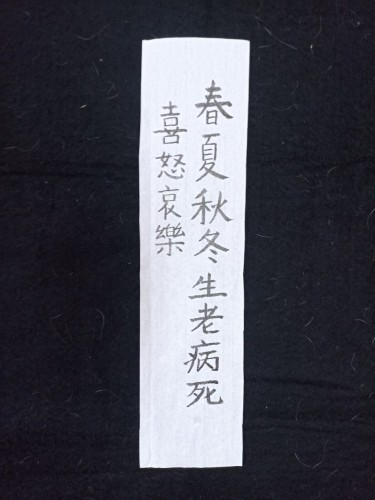 春夏秋冬生老病死
喜怒哀樂